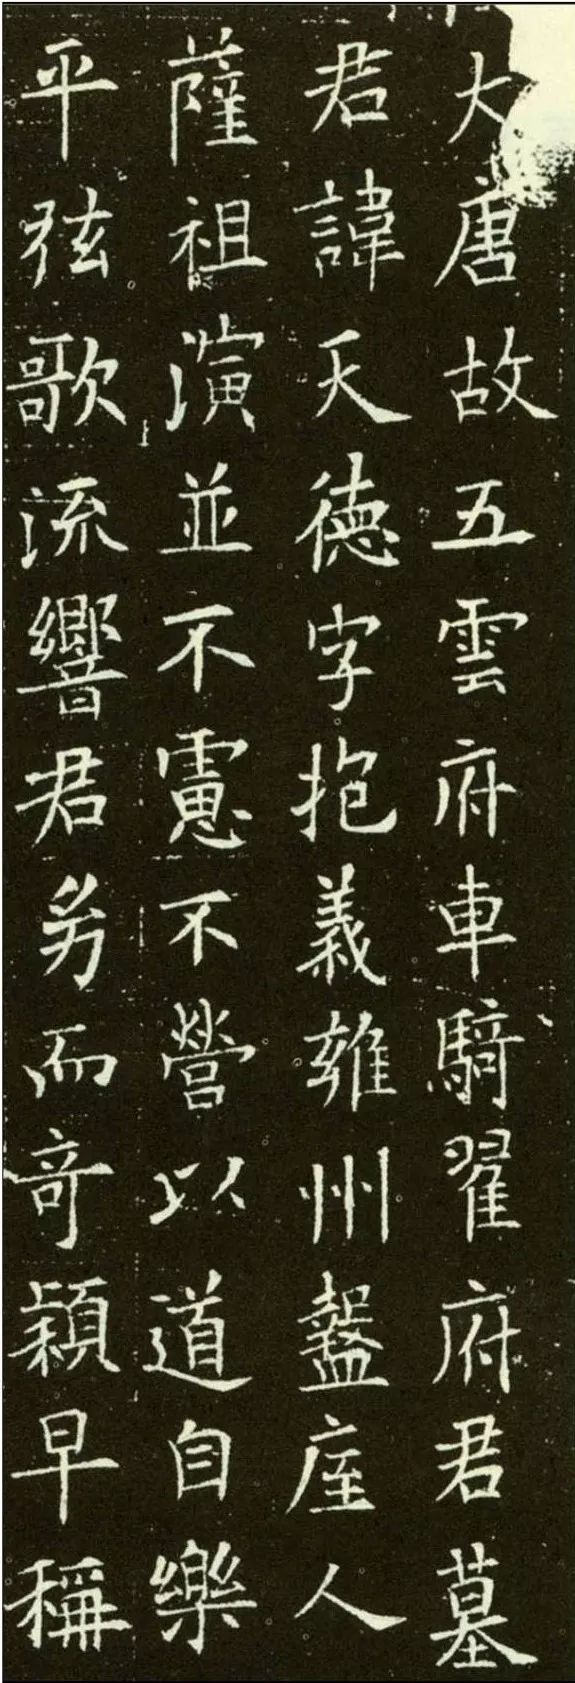 大唐故五雲府車騎翟府君墓
君諱天德字抱義雍州盩厔人
薩祖演並不慮不營以道自樂
平弦歌流響君劣而奇穎早稱